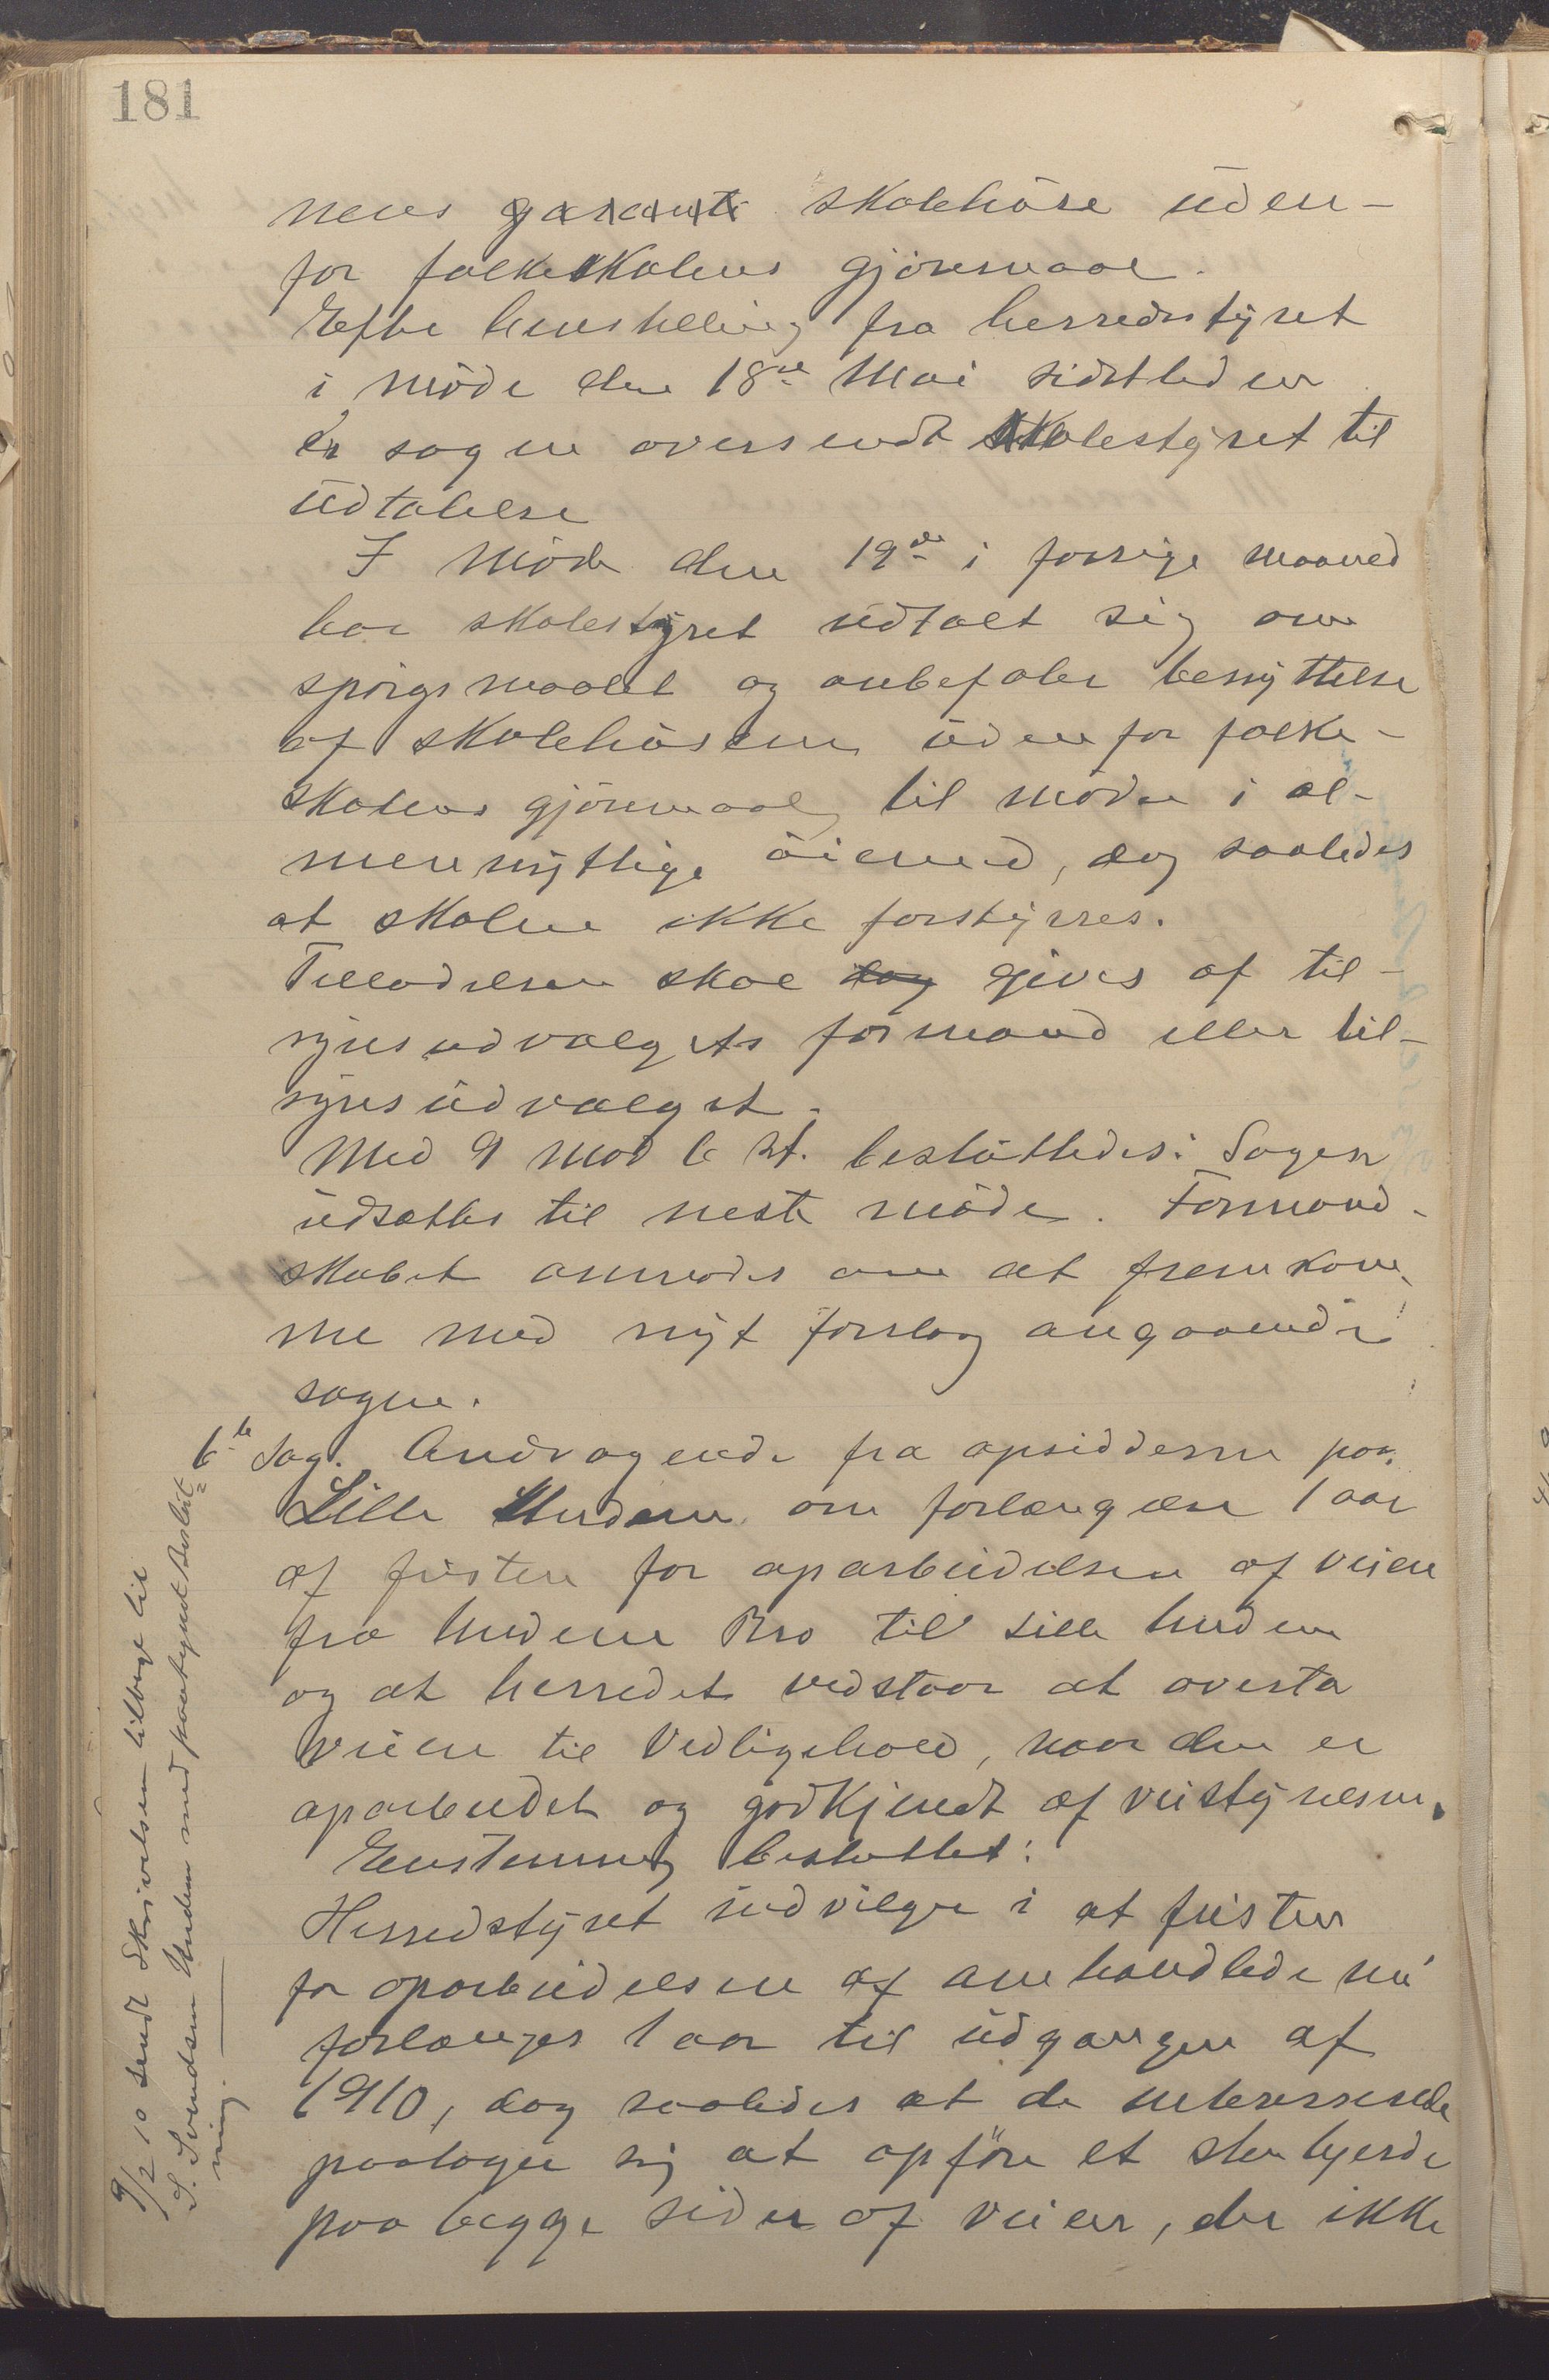 181
nens garanti skolehuse uden-
for folkeskolens gjøremaal.
Efter henstilling fra herredsstyret
i møde den 18de Mai sidstleden
er sagen oversendt skolestyret til
udtalelse
I møde den 19de i forrige maaned
har skolestyret udtalt sig om
spørgsmaalet og anbefaler benyttelse
af skolehusene udenfor folke-
skolens gjøremaal til møder i al-
mennyttige øiemed, dog saaledes
at skolen ikke forstyrres.
Tilladelsen skal dog gives af til-
synsudvalgets formand eller til-
synsudvalget.
Med 9 mod 6 st. besluttedes: Sagen
udsættes til neste møde. Formand-
skabet anmodes om at fremkom-
me med nyt forslag angaaende
sagen.
6te Sag. Andragende fra opsidderne paa
Lille Undem om forlængelse 1 aar
af fristen for oparbeidelsen af veien
fra Undem Bro til Lille Undem
og at herredet vedstaar at overta
veien til Vedligehold, naar den er
oparbeidet og godkjendt af veistyrelsen.
Enstemmig besluttet:
Herredstyret indvilger i at fristen
for oparbeidelsen af omhandlede vei
forlænges 1 aar til udgangen af
1910, dog saaledes at de interesserede
paatager sig at opføre et stengjerde
paa begge sider af veien, der ikke
9/2 10 sendt Skrivelsen tilbage til
S. Svendsen Undem med paategnet beslut-
ning.